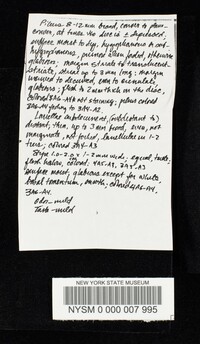 Pileus 8-12 mm broad, convex to plano-
convex, at times the disc is depressed,
surface moist to dry, hygrophanous
pruinose when faded, otherwise
glabrous; margin striate to translucent-
striate, striae up to 3 mm long; margin
incurved to decurved, even to crenulate,
glabrous; flesh to 2 mm thick on the disc,
colored 3A6-A8 not staining; pileus colored
Lamellae subdecurrent, subdistant to
distant, thin, up to 3 mm broad,
marginate, not forked, lamellulae in 1-2
tiers; colored 3A4-A3
Stipe 1.0-2.0 x 1-2 mm wide; equal,
flesh hollow, colored
surface moist, glabrous except for white
basal tomentum, smooth; colored 4A6-A4,
3A6-A4.
Odor - mild
Taste - mild
NEW YORK STATE MUSEUM
NYSM 0 000 007 995